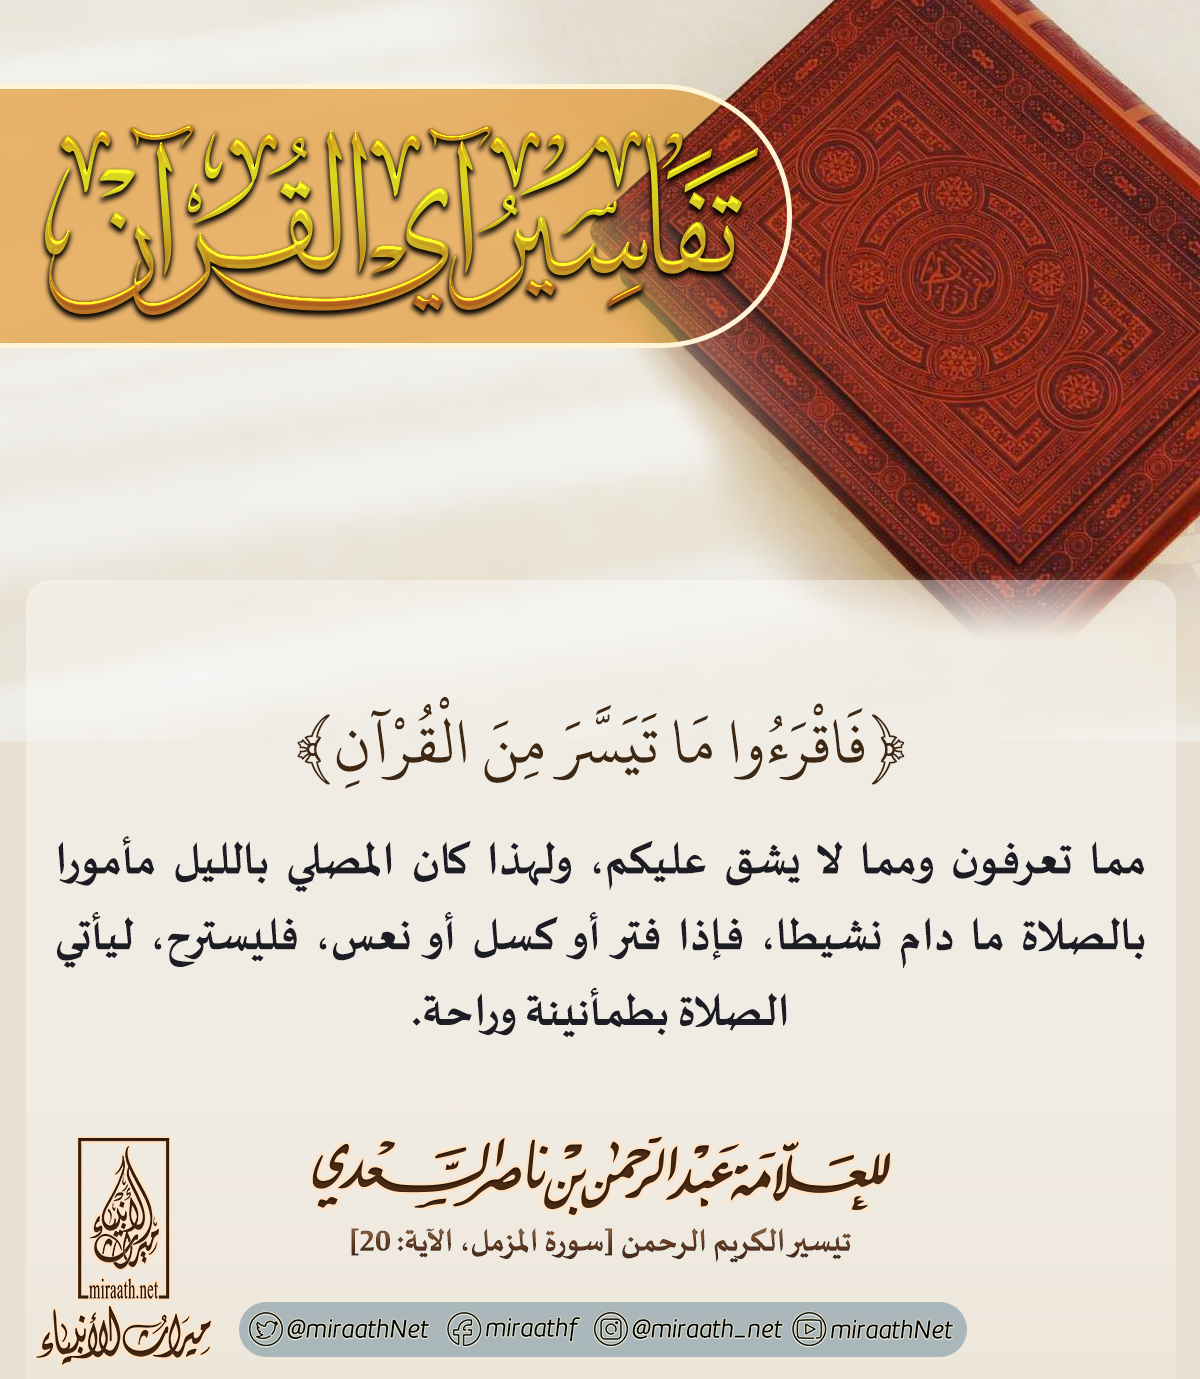 تَفَاسِيرُ آيِ القُرْآنْ
﴿فَاقْرَءُوا مَا تَيَسَّرَ مِنَ الْقُرْآنِ﴾
مما تعرفون ومما لا يشق عليكم، ولهذا كان المصلي بالليل مأمورا
بالصلاة ما دام نشيطا، فإذا فتر أو كسل أو نعس، فليسترح، ليأتي
الصلاة بطمأنينة وراحة.
للعلّامَة عَبْدالرَحمٰن بْن ناصر السَّعْدي
تيسير الكريم الرحمن [سورة المزمل، الآية: 20]
ميراث الأنبياء
miraath.net
ميراث الأنبياء
@miraathNet miraathf @miraath_net miraathNet